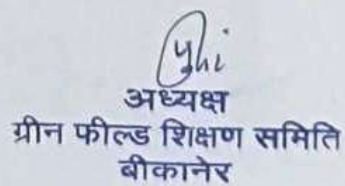 अध्यक्ष
ग्रीन फील्ड शिक्षण समिति
बीकानेर